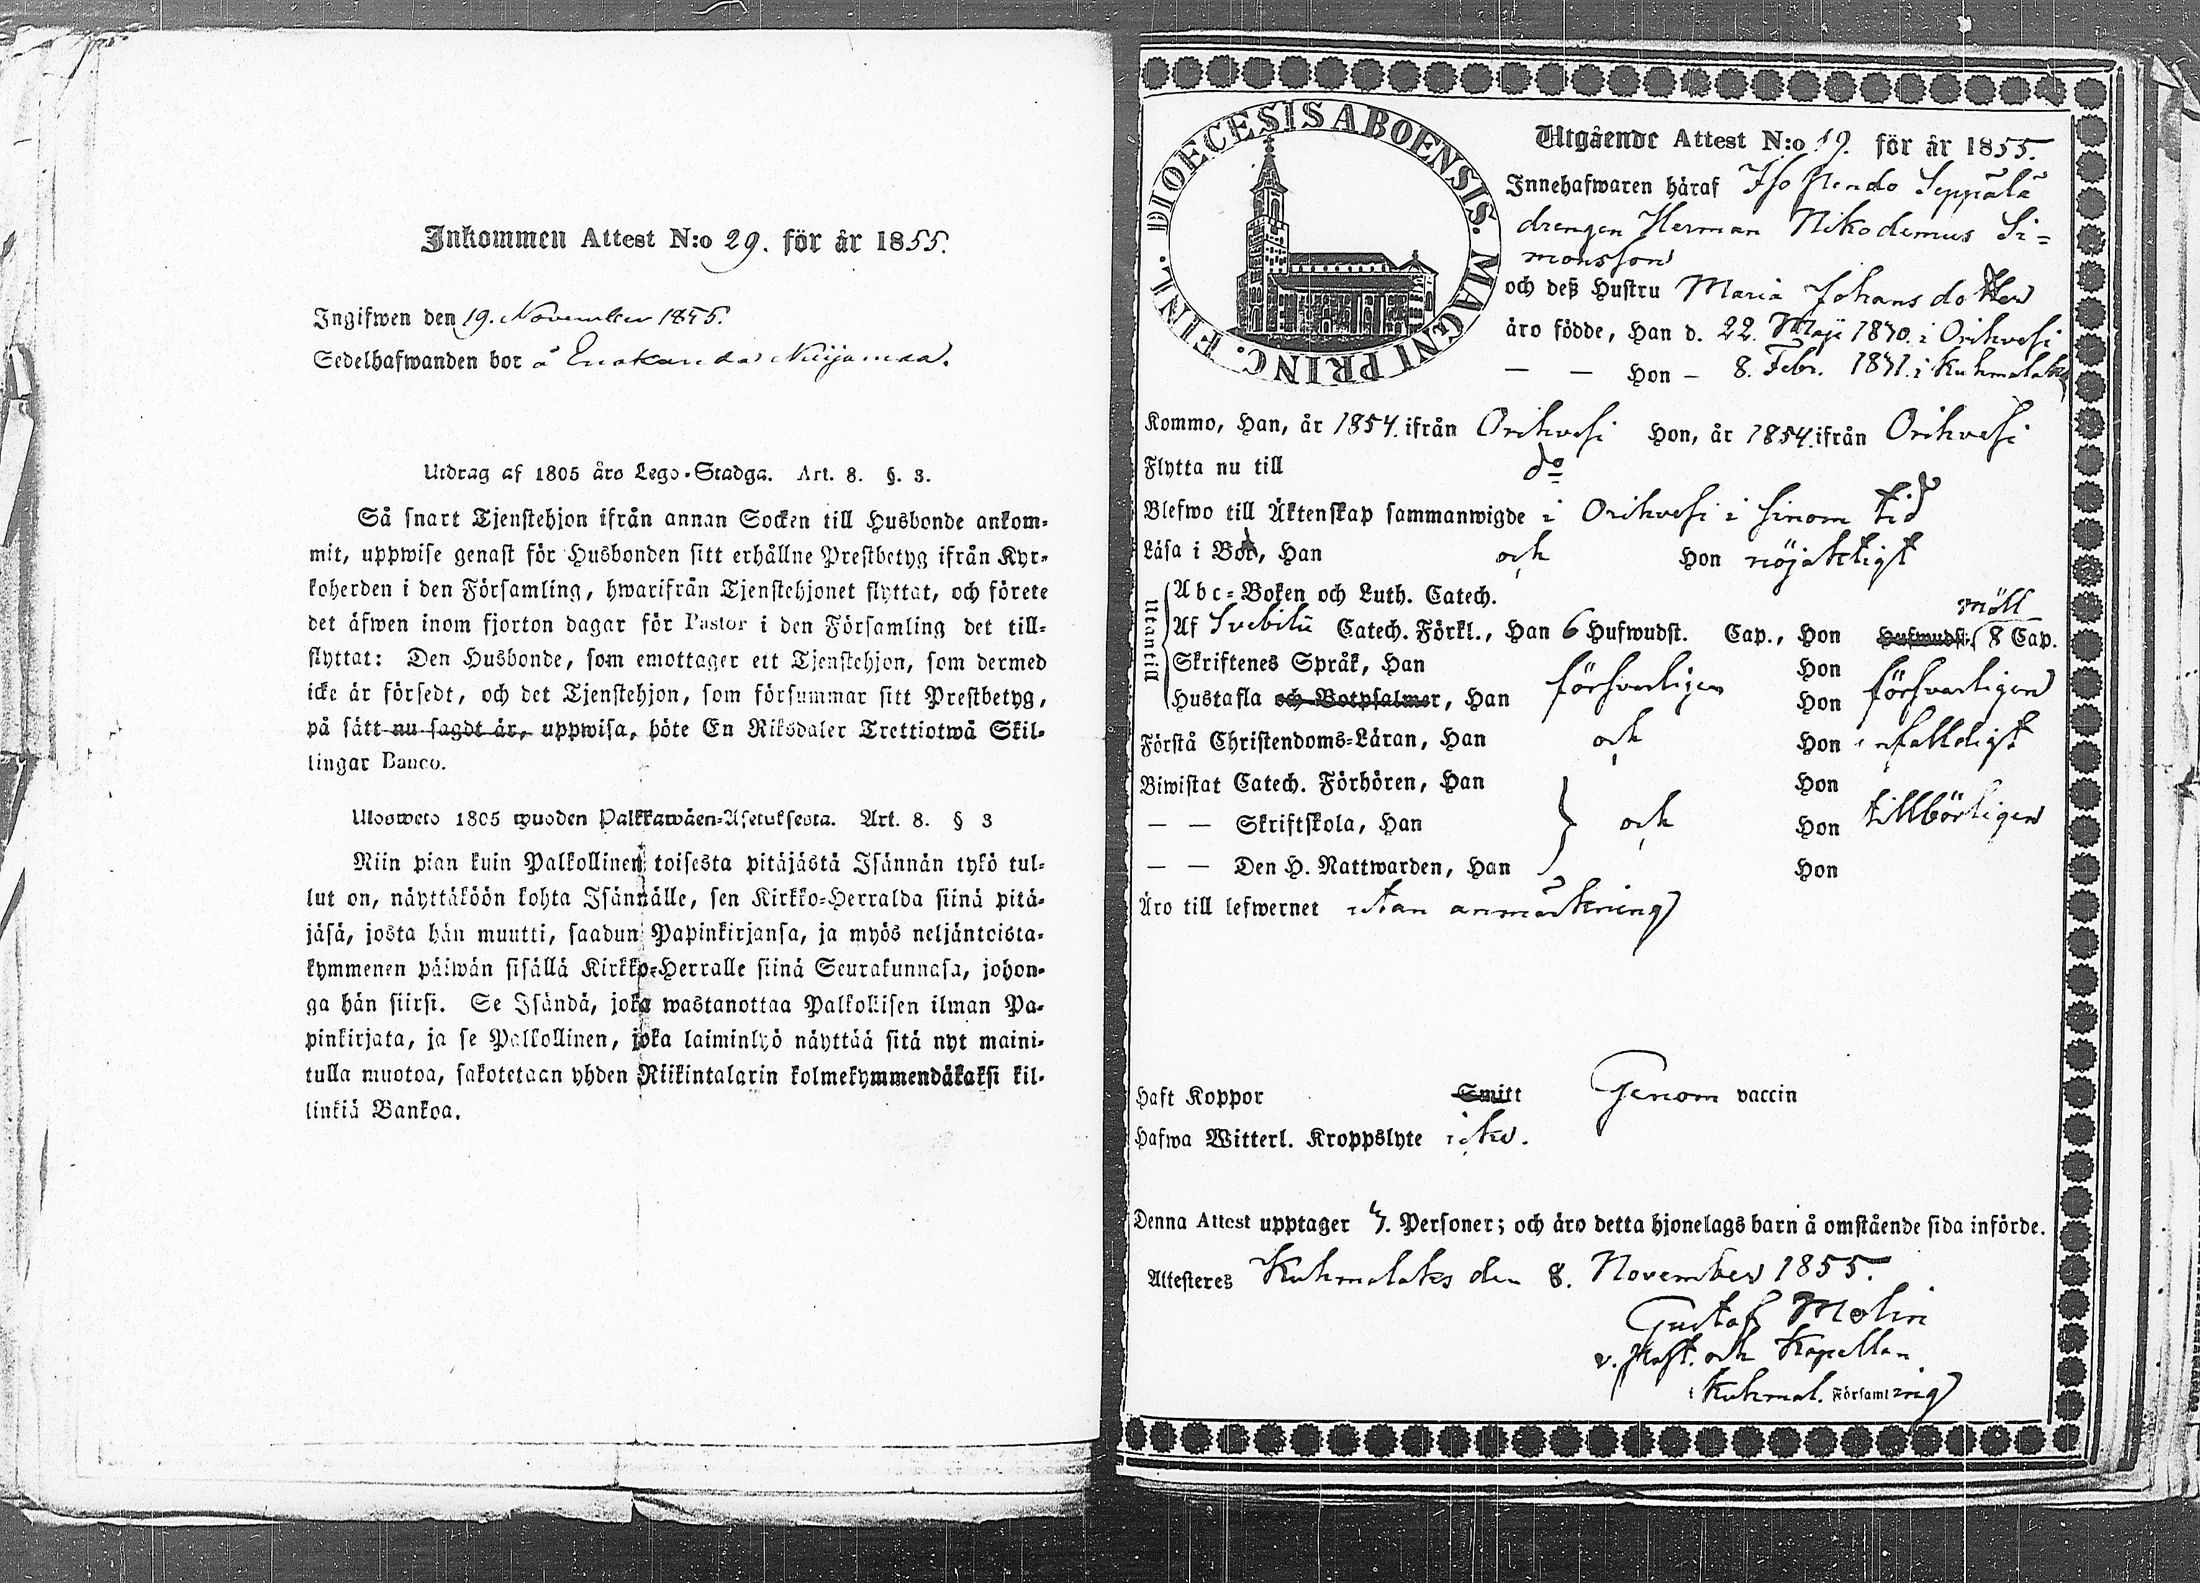 Inkommen Attest N:o 29. för år 1855.
Ingifwen den 19. November 1855.
Sedelhafwanden bor å
Utdrag af 1805 års Lego-Stadga. Art. 8. §. 3.
Så snart Tjenstehjon ifrån annan Socken till Husbonde ankom-
mit, uppwise genast för Husbonden sitt erhållne Prestbetyg ifrån Kyr-
koherden i den Församling, hwarifrån Tjenstehjonet flyttat, och förete
det äfwen inom fjorton dagar för Pastor i den Församling det till-
flyttat: Den Husbonde, som emottager ett Tjenstehjon, som dermed
icke är försedt, och det Tjenstehjon, som försummar sitt Prestbetyg,
på sätt nu sagdt är, uppwisa, böte En Riksdaler Trettiotwå Skil-
lingar Banco.
Ulosweto 1805 wuoden Palkkawäen-Asetuksesta. Art. 8. § 3
Niin pian kuin Palkollinen toisesta pitäjästä Isännän tykö tul-
lut on, näyttäköön kohta Isännälle, sen Kirkko-Herralda siinä pitä-
jäsä, josta hän muutti, saadun Papinkirjansa, ja myös neljäntoista-
kymmenen päiwän sisällä Kirkko-Herralle siinä Seurakunnasa, johon-
ga hän siirsi. Se Isändä, joka wastanottaa Palkollisen ilman Pa-
pinkirjata, ja se Palkollinen, joka laiminlyö näyttää sitä nyt maini-
tulla muotoa, sakotetaan yhden Riikintalarin kolmekymmendäkaksi kil-
linkiä Bankoa.
DIOECESIS ABOENSIS. MAGNI PRINC. FINL.
Utgående Attest N:o 19. för år 1855.
Innehafwaren häraf Seppälä
drengen Herman Nikodemus Si-
monsson
och deß Hustru Maria Johansdotter
äro födde, Han d. 22. Maji 1830. i Orihvesi
— — Hon – 8. Febr. 1831. i Kuhmalaks
Kommo, Han, år 1854. ifrån Orihvesi Hon, år 1854. ifrån Orihvesi
Flytta nu till do
Blefwo till Äktenskap sammanwigde i Orihvesi i sinom tid
Läsa i Bok, Han och Hon nöjaktigt
Utantill
Abc-Boken och Luth. Catech.
Af Svebilii Catech. Förkl., Han 6 Hufwudst. Cap., Hon Hufwudst. 8 Cap.
Skriftenes Språk, Han försvarligen Hon försvarligen
Hustafla och Botpsalmer, Han Hon
Förstå Christendoms-Läran, Han och Hon enfalldigt
Biwistat Catech. Förhören, Han Hon
— — Skriftskola, Han och Hon tillbörligen
— — Den H. Nattwarden, Han Hon
Äro till lefwernet utan anmärkning
Haft Koppor Smitt Genom vaccin
Hafwa Witterl. Kroppslyte icke.
Denna Attest upptager Personer; och äro detta hjonelags barn å omstående sida införde.
Attesteres Kuhmalaks den 8. November 1855.
Gustaf Molin
v. Past. och Kapellan
i Kuhmal. Församling